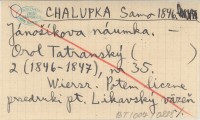 CHALUPKA Samo 1846
Jánošíkova náumka. –
Orol Tatranský (
2 (1846-1847), no 35.
Wiersz. Potem liczne
przedruki pt. Likavský väzeň